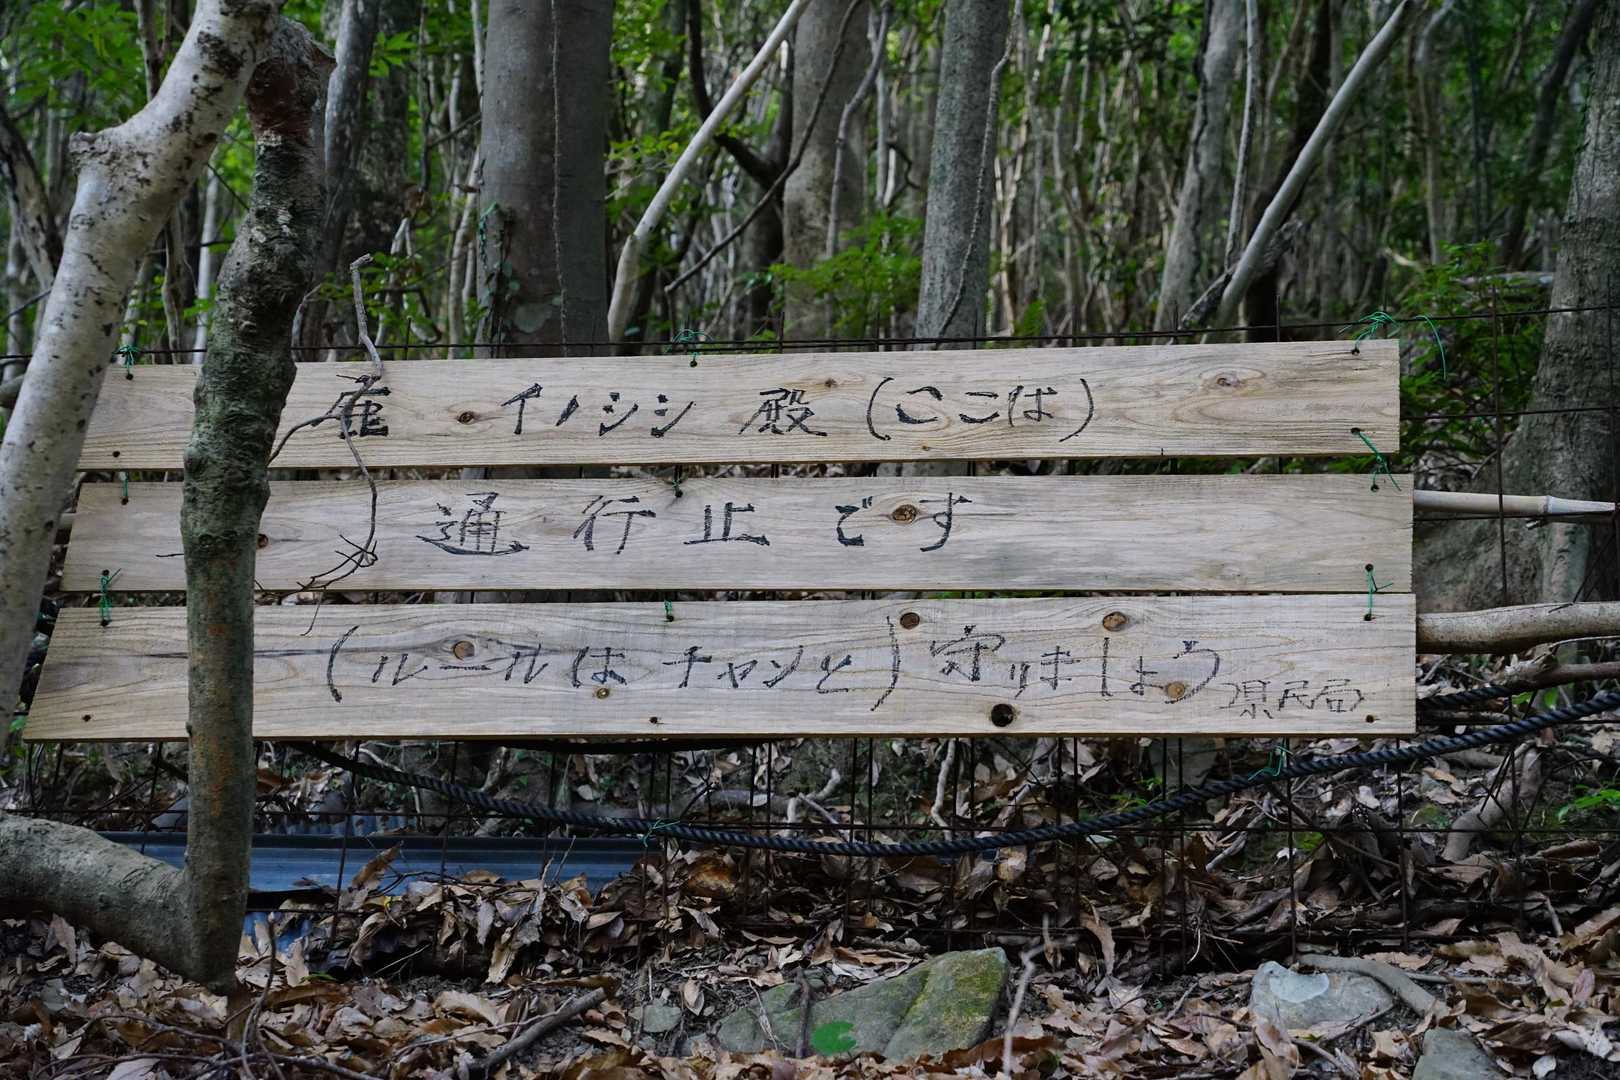 鹿 イノシシ 殿 (ここは)
通行止です
(ルールはチャンと)守りましょう 県民局